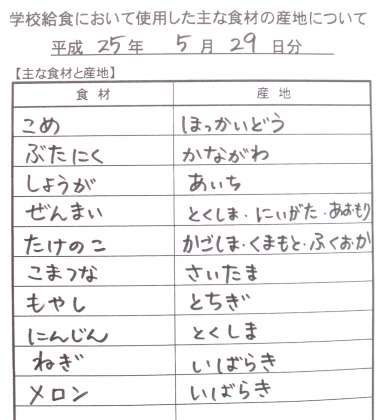 学校給食において使用した主な食材の産地について
平成 25 年 5 月 29 日分
【主な食材と産地】
食材 産地
こめ ほっかいどう
ぶたにく かながわ
しょうが あいち
ぜんまい とくしま・にいがた・あおもり
たけのこ かごしま・くまもと・ふくおか
こまつな さいたま
もやし とちぎ
にんじん とくしま
ねぎ いばらき
メロン いばらき